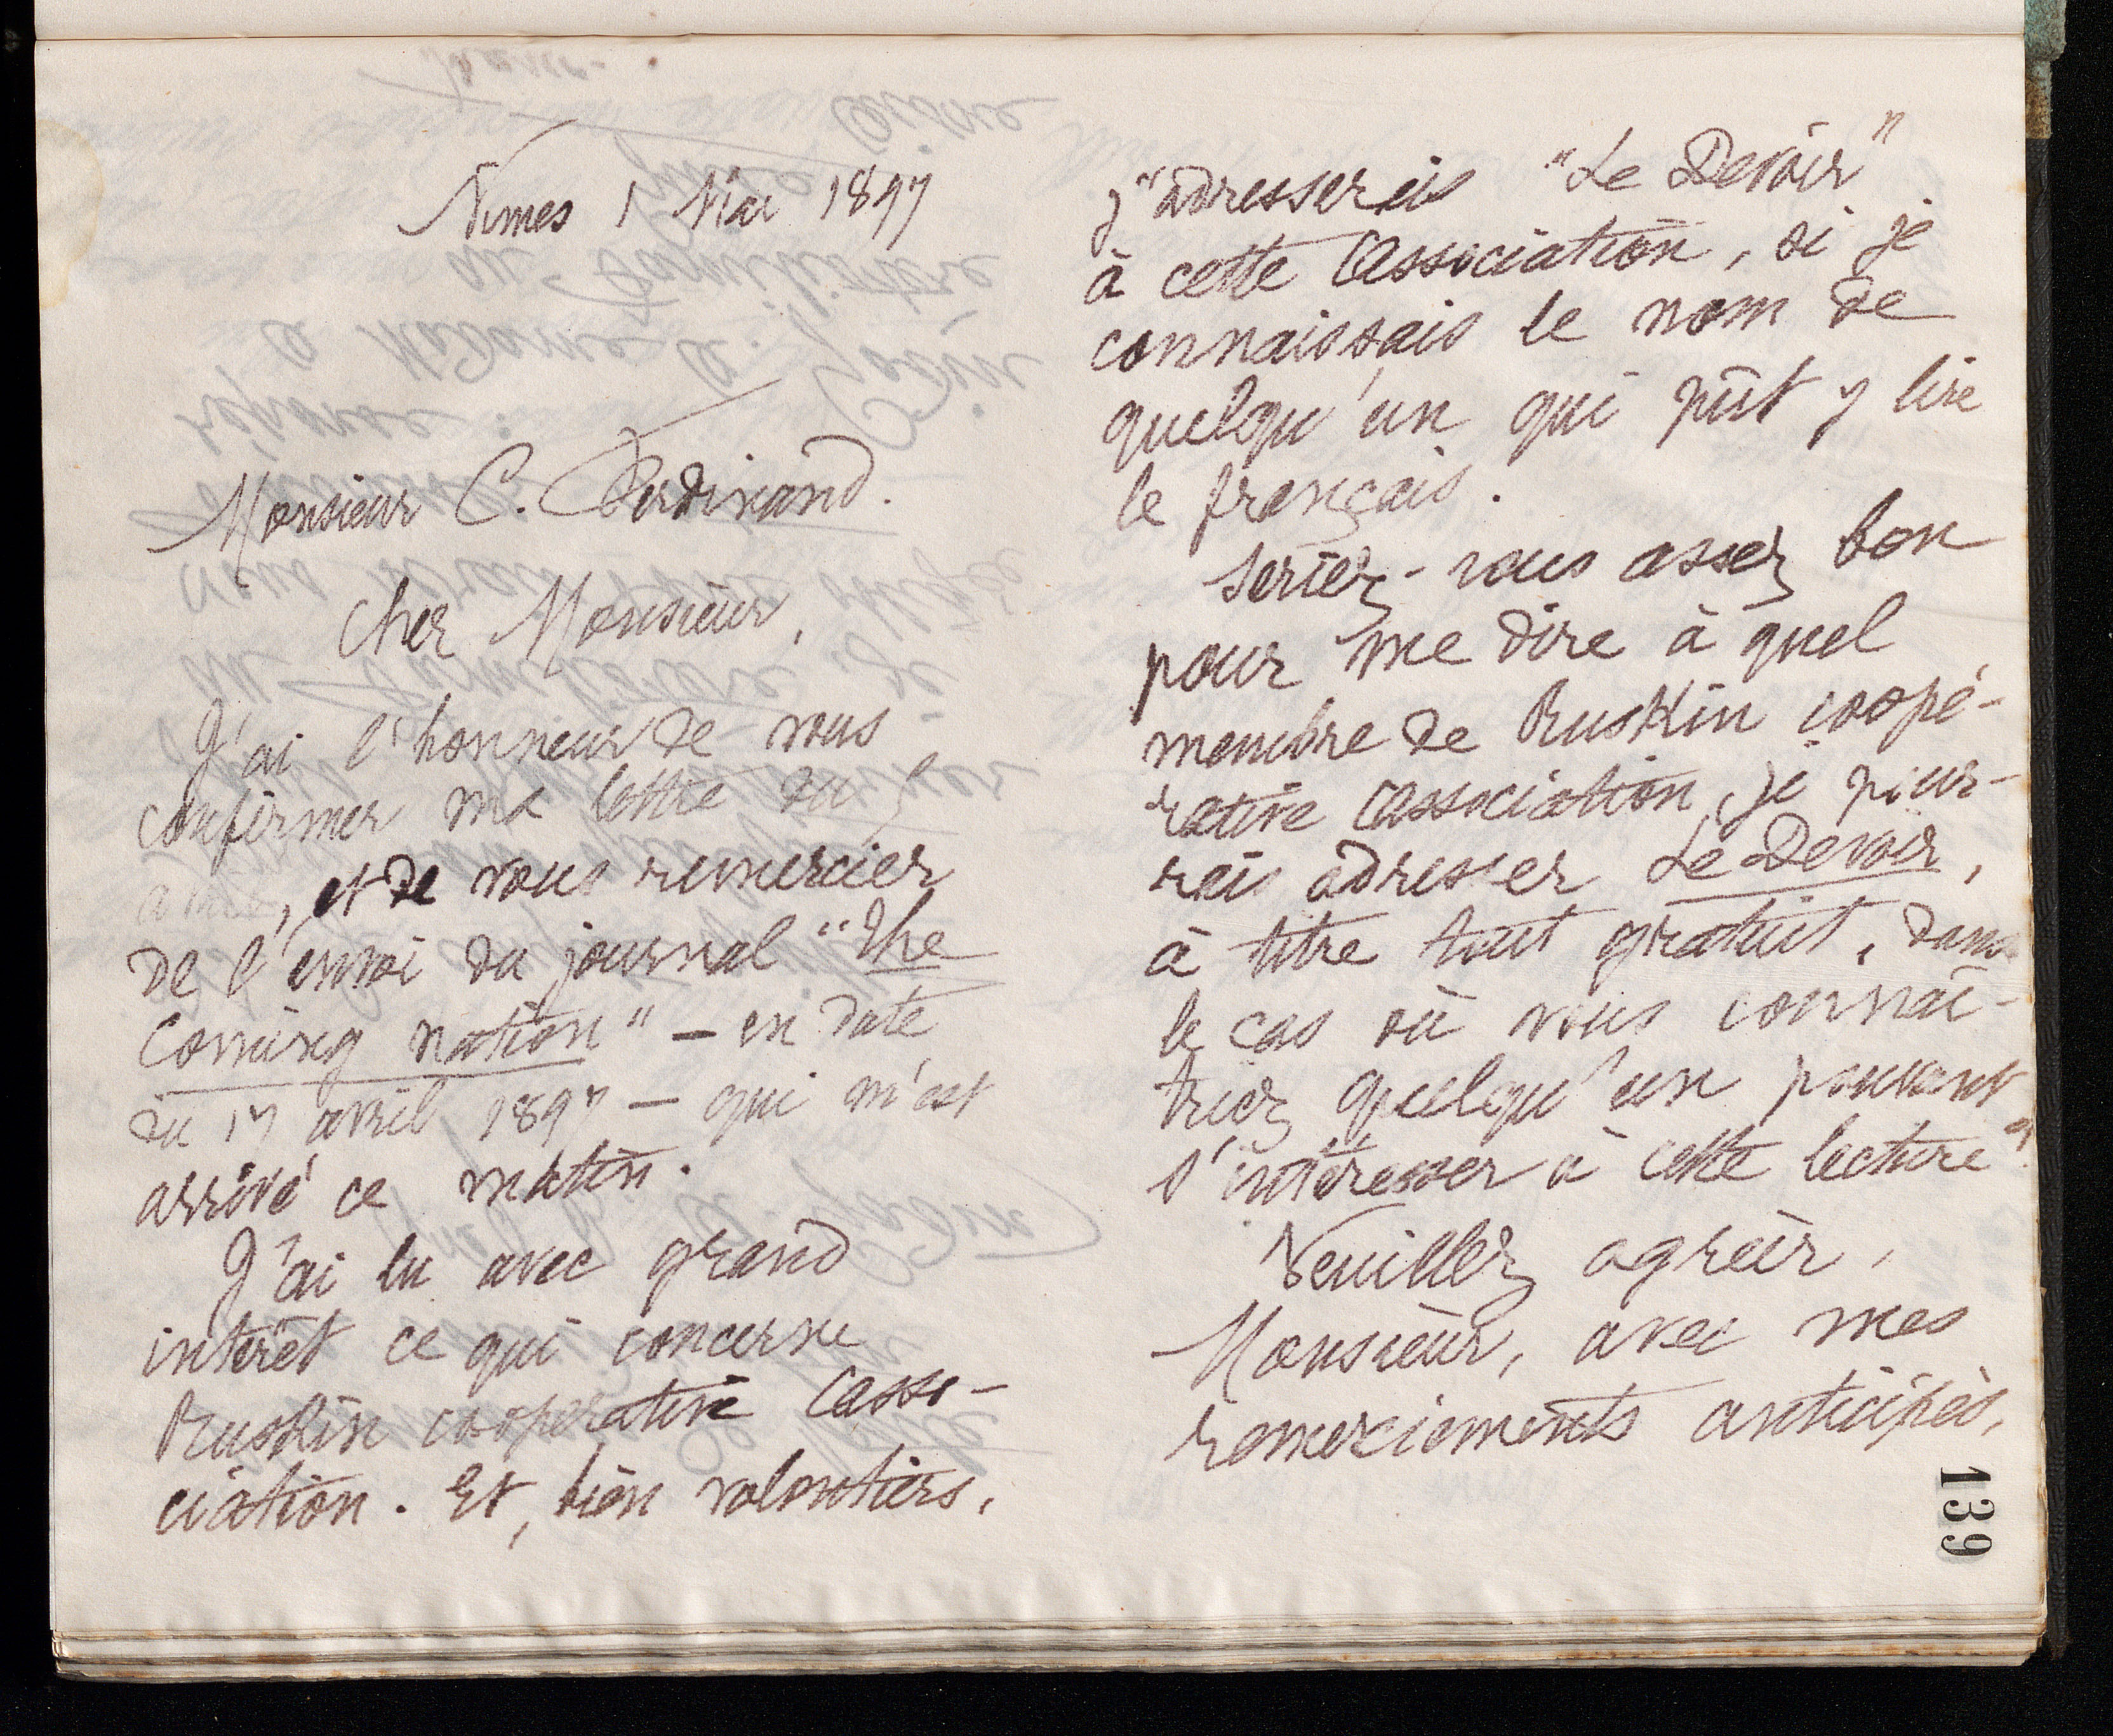 Nimes 1 Mai 1897
Monsieur C. Ferdinand.
Cher Monsieur,
J'ai l'honneur de vous
confirmer ma lettre du 5
avril, et de vous remercier
de l'envoi du journal "The
Coming nation" – en date
du 17 avril 1897 – qui m'est
arrivé ce matin.
J'ai lu avec grand
intérêt ce qui concerne
Ruskin coopérative Asso-
ciation. Et, bien volontiers,
j'adresserais "Le Devoir"
à cette Association, si je
connaissais le nom de
quelqu'un qui pût y lire
le français.
Seriez-vous assez bon
pour me dire à quel
membre de Ruskin coopé-
rative Association, je pour-
rais adresser Le Devoir,
à titre tout gratuit, dans
le cas où vous connaî-
triez quelqu'un pouvant
s'intéresser à cette lecture?
Veuillez agréer,
Monsieur, avec mes
remerciements anticipés,
139